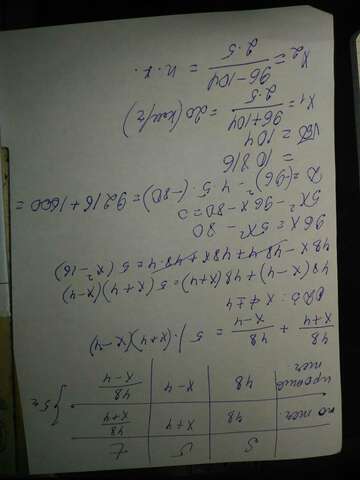 S V t
по теч. 48 x+4 48/(x+4)
против теч. 48 x-4 48/(x-4) } 5ч
48/(x+4) + 48/(x-4) = 5 | ·(x+4)(x-4)
ОДЗ: x ≠ ±4
48(x-4)+48(x+4)=5(x+4)(x-4)
48x - 48·4 + 48x + 48·4 = 5(x²-16)
96x = 5x² - 80
5x² - 96x - 80 = 0
D = (96)² - 4·5·(-80) = 9216 + 1600 =
= 10816
√D = 104
x₁ = (96+104)/(2·5) = 20 (км/ч)
x₂ = (96-104)/(2·5) =